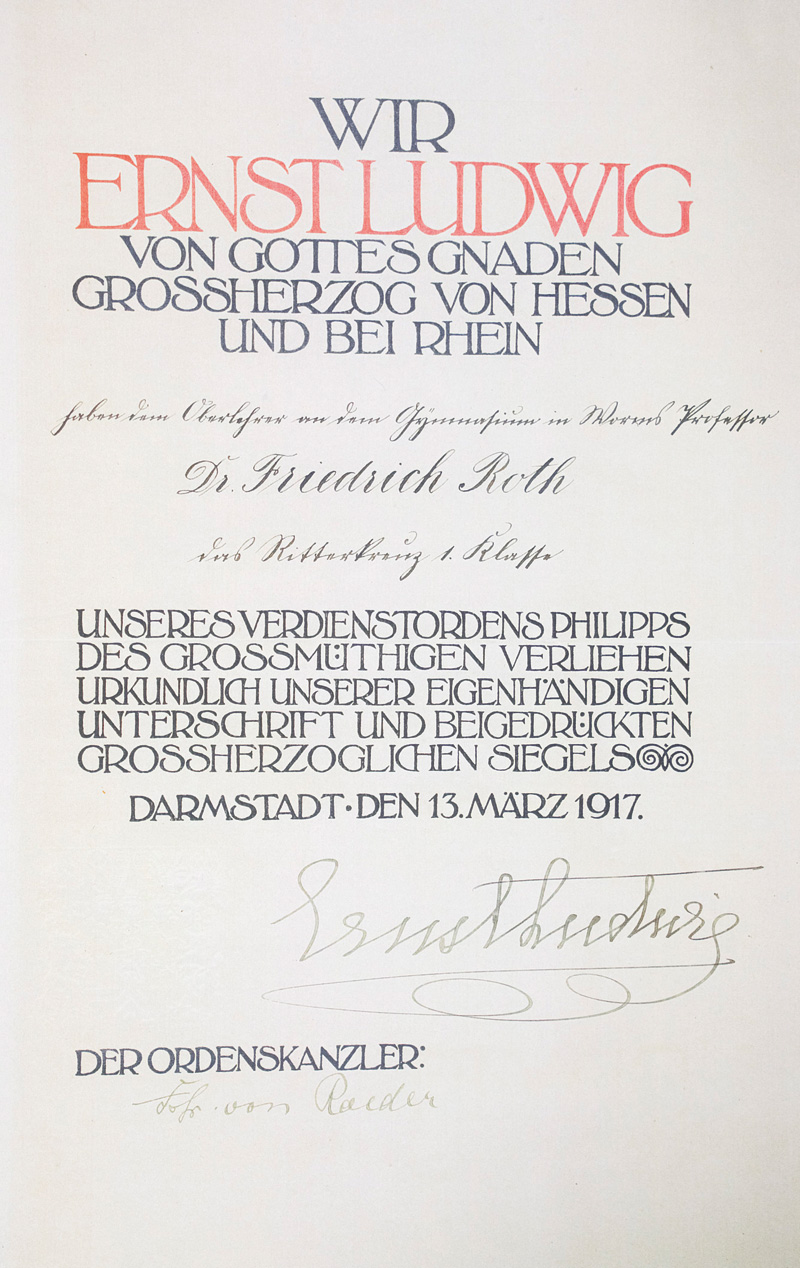 WIR
ERNST LUDWIG
VON GOTTES GNADEN
GROSSHERZOG VON HESSEN
UND BEI RHEIN
haben dem Oberlehrer an dem Gymnasium in Worms Professor
Dr. Friedrich Roth
das Ritterkreuz 1. Klasse
UNSERES VERDIENSTORDENS PHILIPPS
DES GROSSMÜTHIGEN VERLIEHEN
URKUNDLICH UNSERER EIGENHÄNDIGEN
UNTERSCHRIFT UND BEIGEDRÜCKTEN
GROSSHERZOGLICHEN SIEGELS
DARMSTADT · DEN 13. MÄRZ 1917.
Ernst Ludwig
DER ORDENSKANZLER:
Frhr. von Roeder